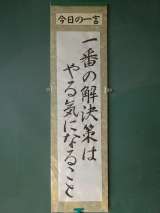 今日の一言
一番の解決策は
やる気になること